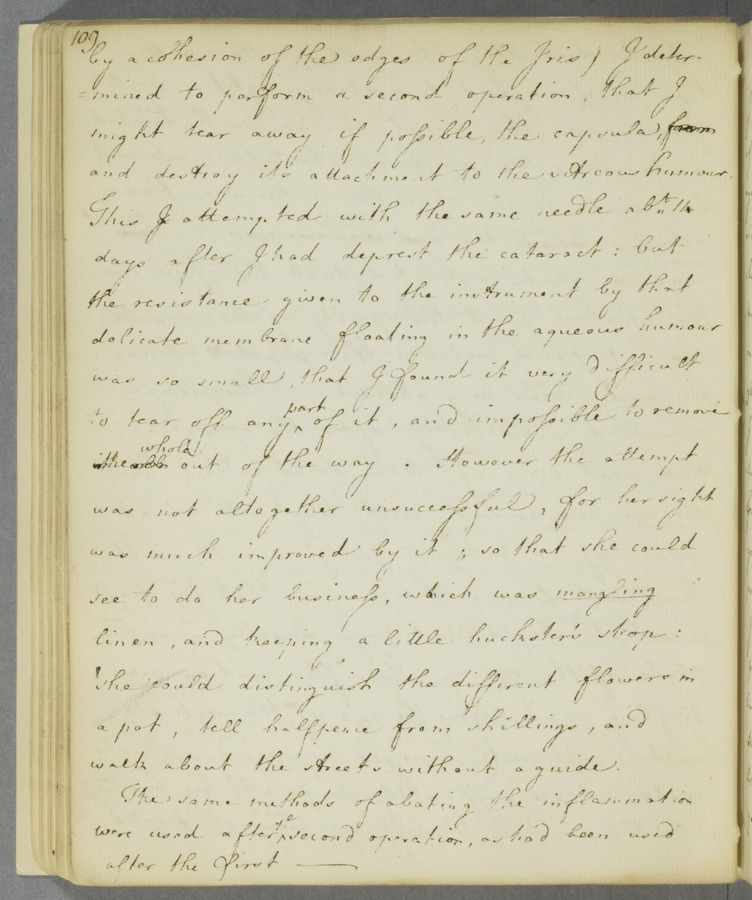 109
by a cohesion of the edges of the Iris) I deter-
=mined to perform a second operation, that I
might tear away if possible, the capsula, from
and destroy its attachment to the vitreous humour.
This I attempted with the same needle abt. 14
days after I had deprest the cataract: but
the resistance given to the instrument by that
delicate membrane floating in the aqueous humour
was so small, that I found it very difficult
to tear off any part of it, and impossible to remove
the whole out of the way. However the attempt
was not altogether unsuccessful, for her sight
was much improved by it; so that she could
see to do her business, which was mangling
linen, and keeping a little huckster's shop:
She could distinguish the different flowers in
a pot, tell halfpence from shillings, and
walk about the streets without a guide.
The same methods of abating the inflammation
were used after ye second operation, as had been used
after the first —